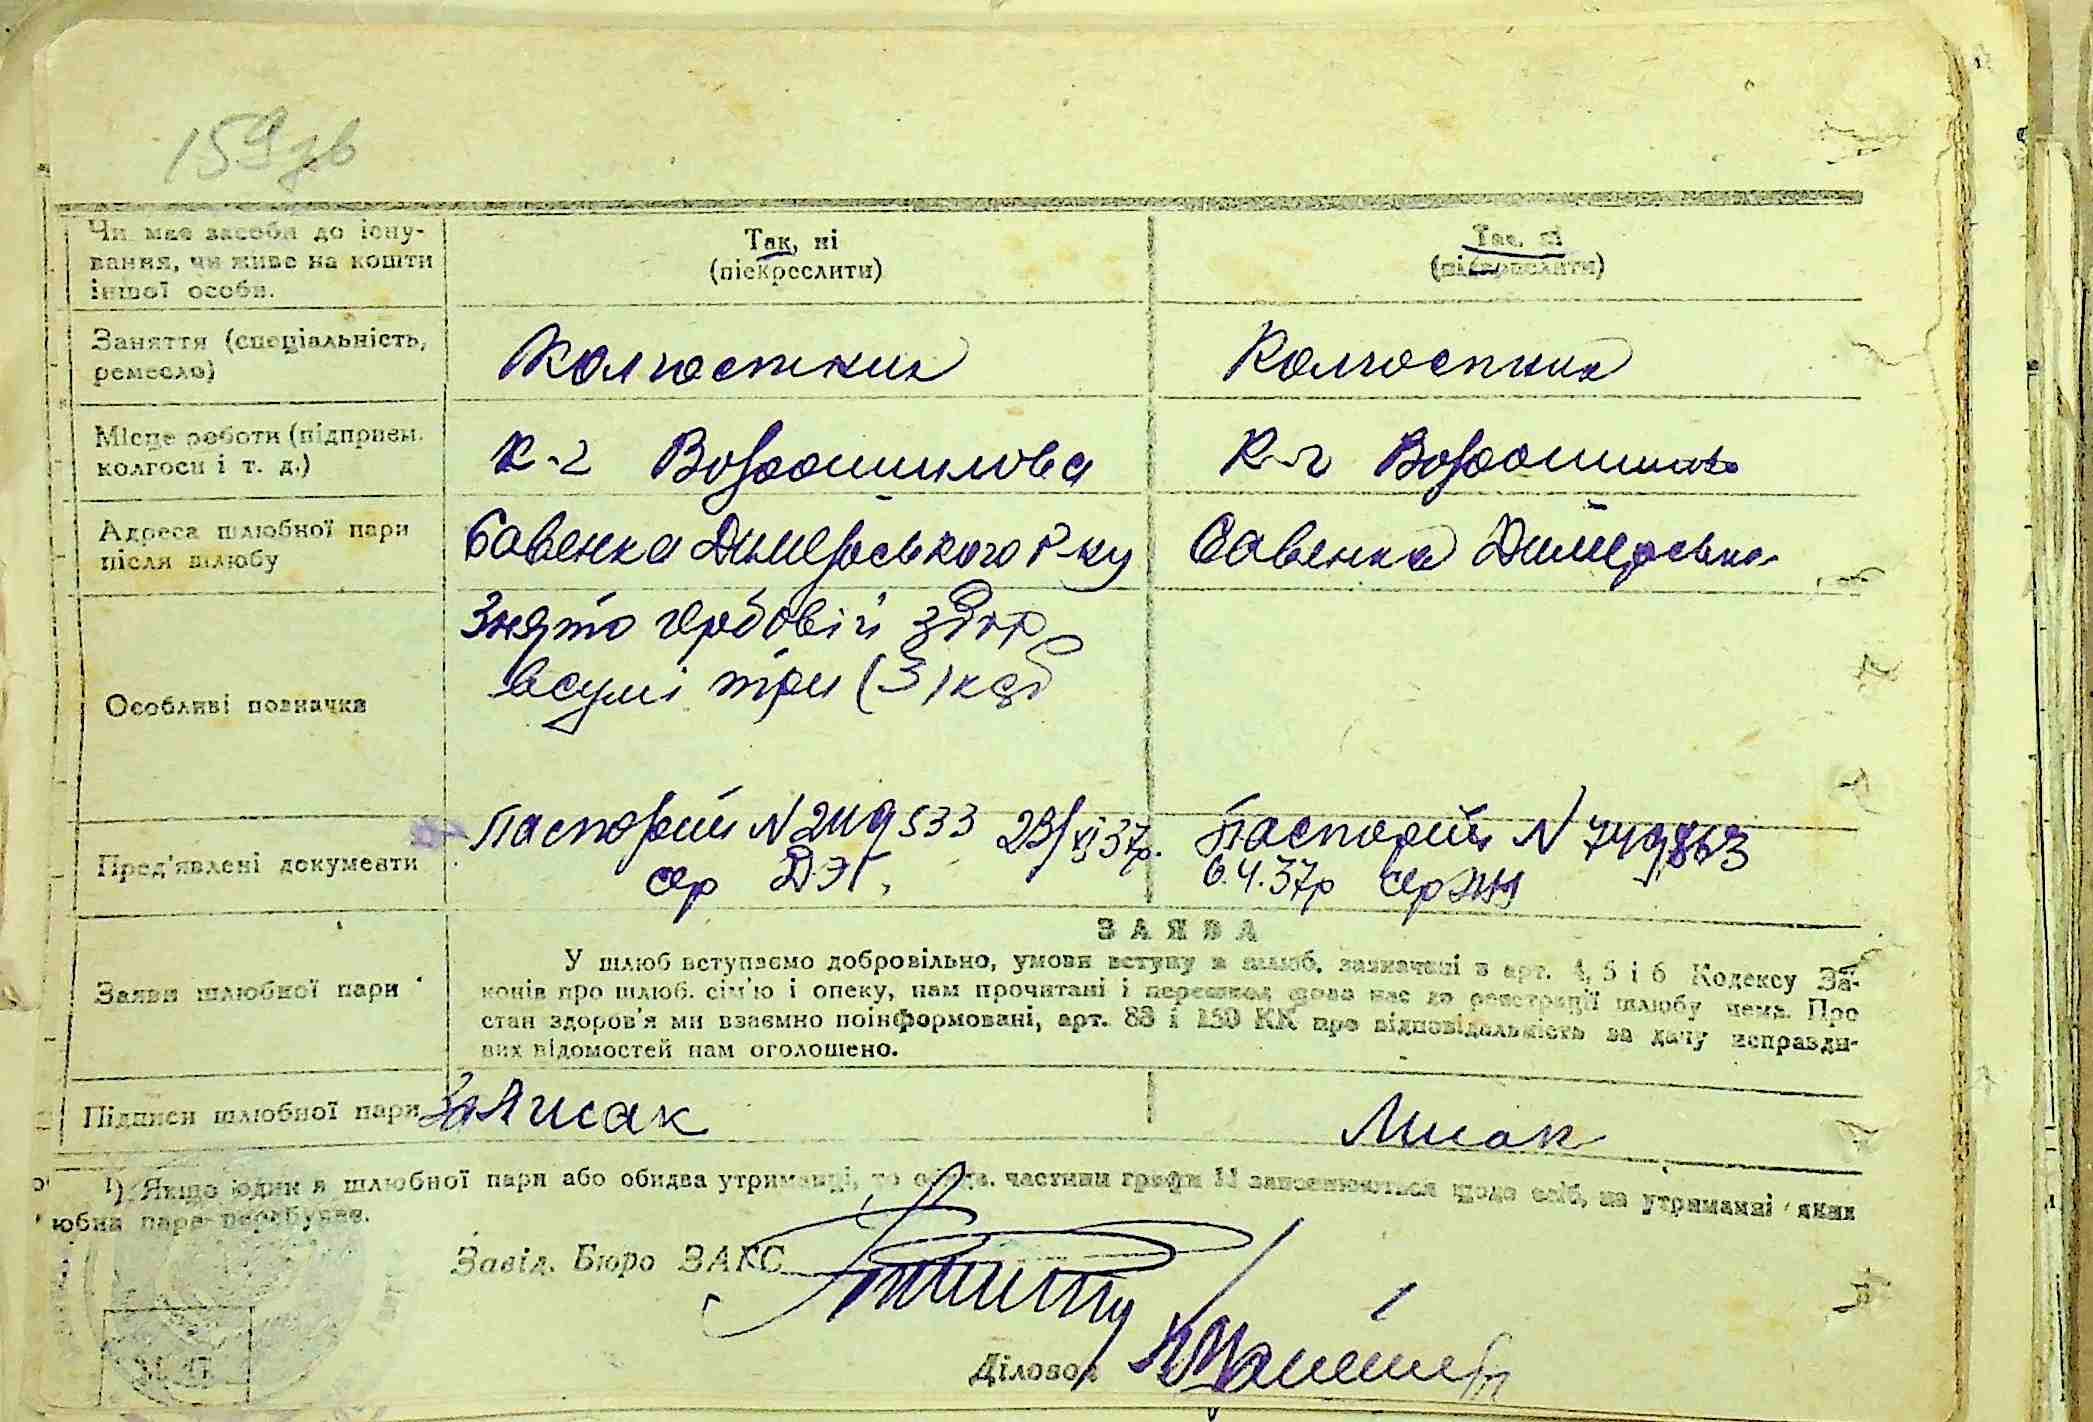 159 зв
Чи має засоби до існу-
вання, чи живе на кошти
іншої особи.
Так, ні
(підкреслити)
Так, ні
(підкреслити)
Заняття (спеціальність,
ремесло)
Колгоспник
Колгоспник
Місце роботи (підприєм.
колгосп і т. д.)
К-г Ворошилова
К-г Ворошилова
Адреса шлюбної пари
після шлюбу
Савенка Димерського р-ку
Савенка Димерська
Особливі позначки
Знято гербовій збір
в сумі три (3) карб
Пред'явлені документи
Паспорти N 249533 23/XI 37р.
сер ДЭГ,
Паспорти N 749863
6.4.37р сер
ЗАЯВА
Заяви шлюбної пари
У шлюб вступаємо добровільно, умови вступу в шлюб, зазначені в арт. 4, 5 і 6 Кодексу За-
конів про шлюб, сім'ю і опеку, нам прочитані і перешкод щодо нас до реєстрації шлюбу нема. Про
стан здоров'я ми взаємно поінформовані, арт. 88 і 150 КК про відповідальність за дачу неправди-
вих відомостей нам оголошено.
Підписи шлюбної пари
За Лисак
Лисак
1) Якщо один з шлюбної пари або обидва утриманці, то обидв. частини графи 11 заповнюються щодо осіб, на утриманні яких
юбна пара перебуває.
Завід. Бюро ЗАГС
Діловод